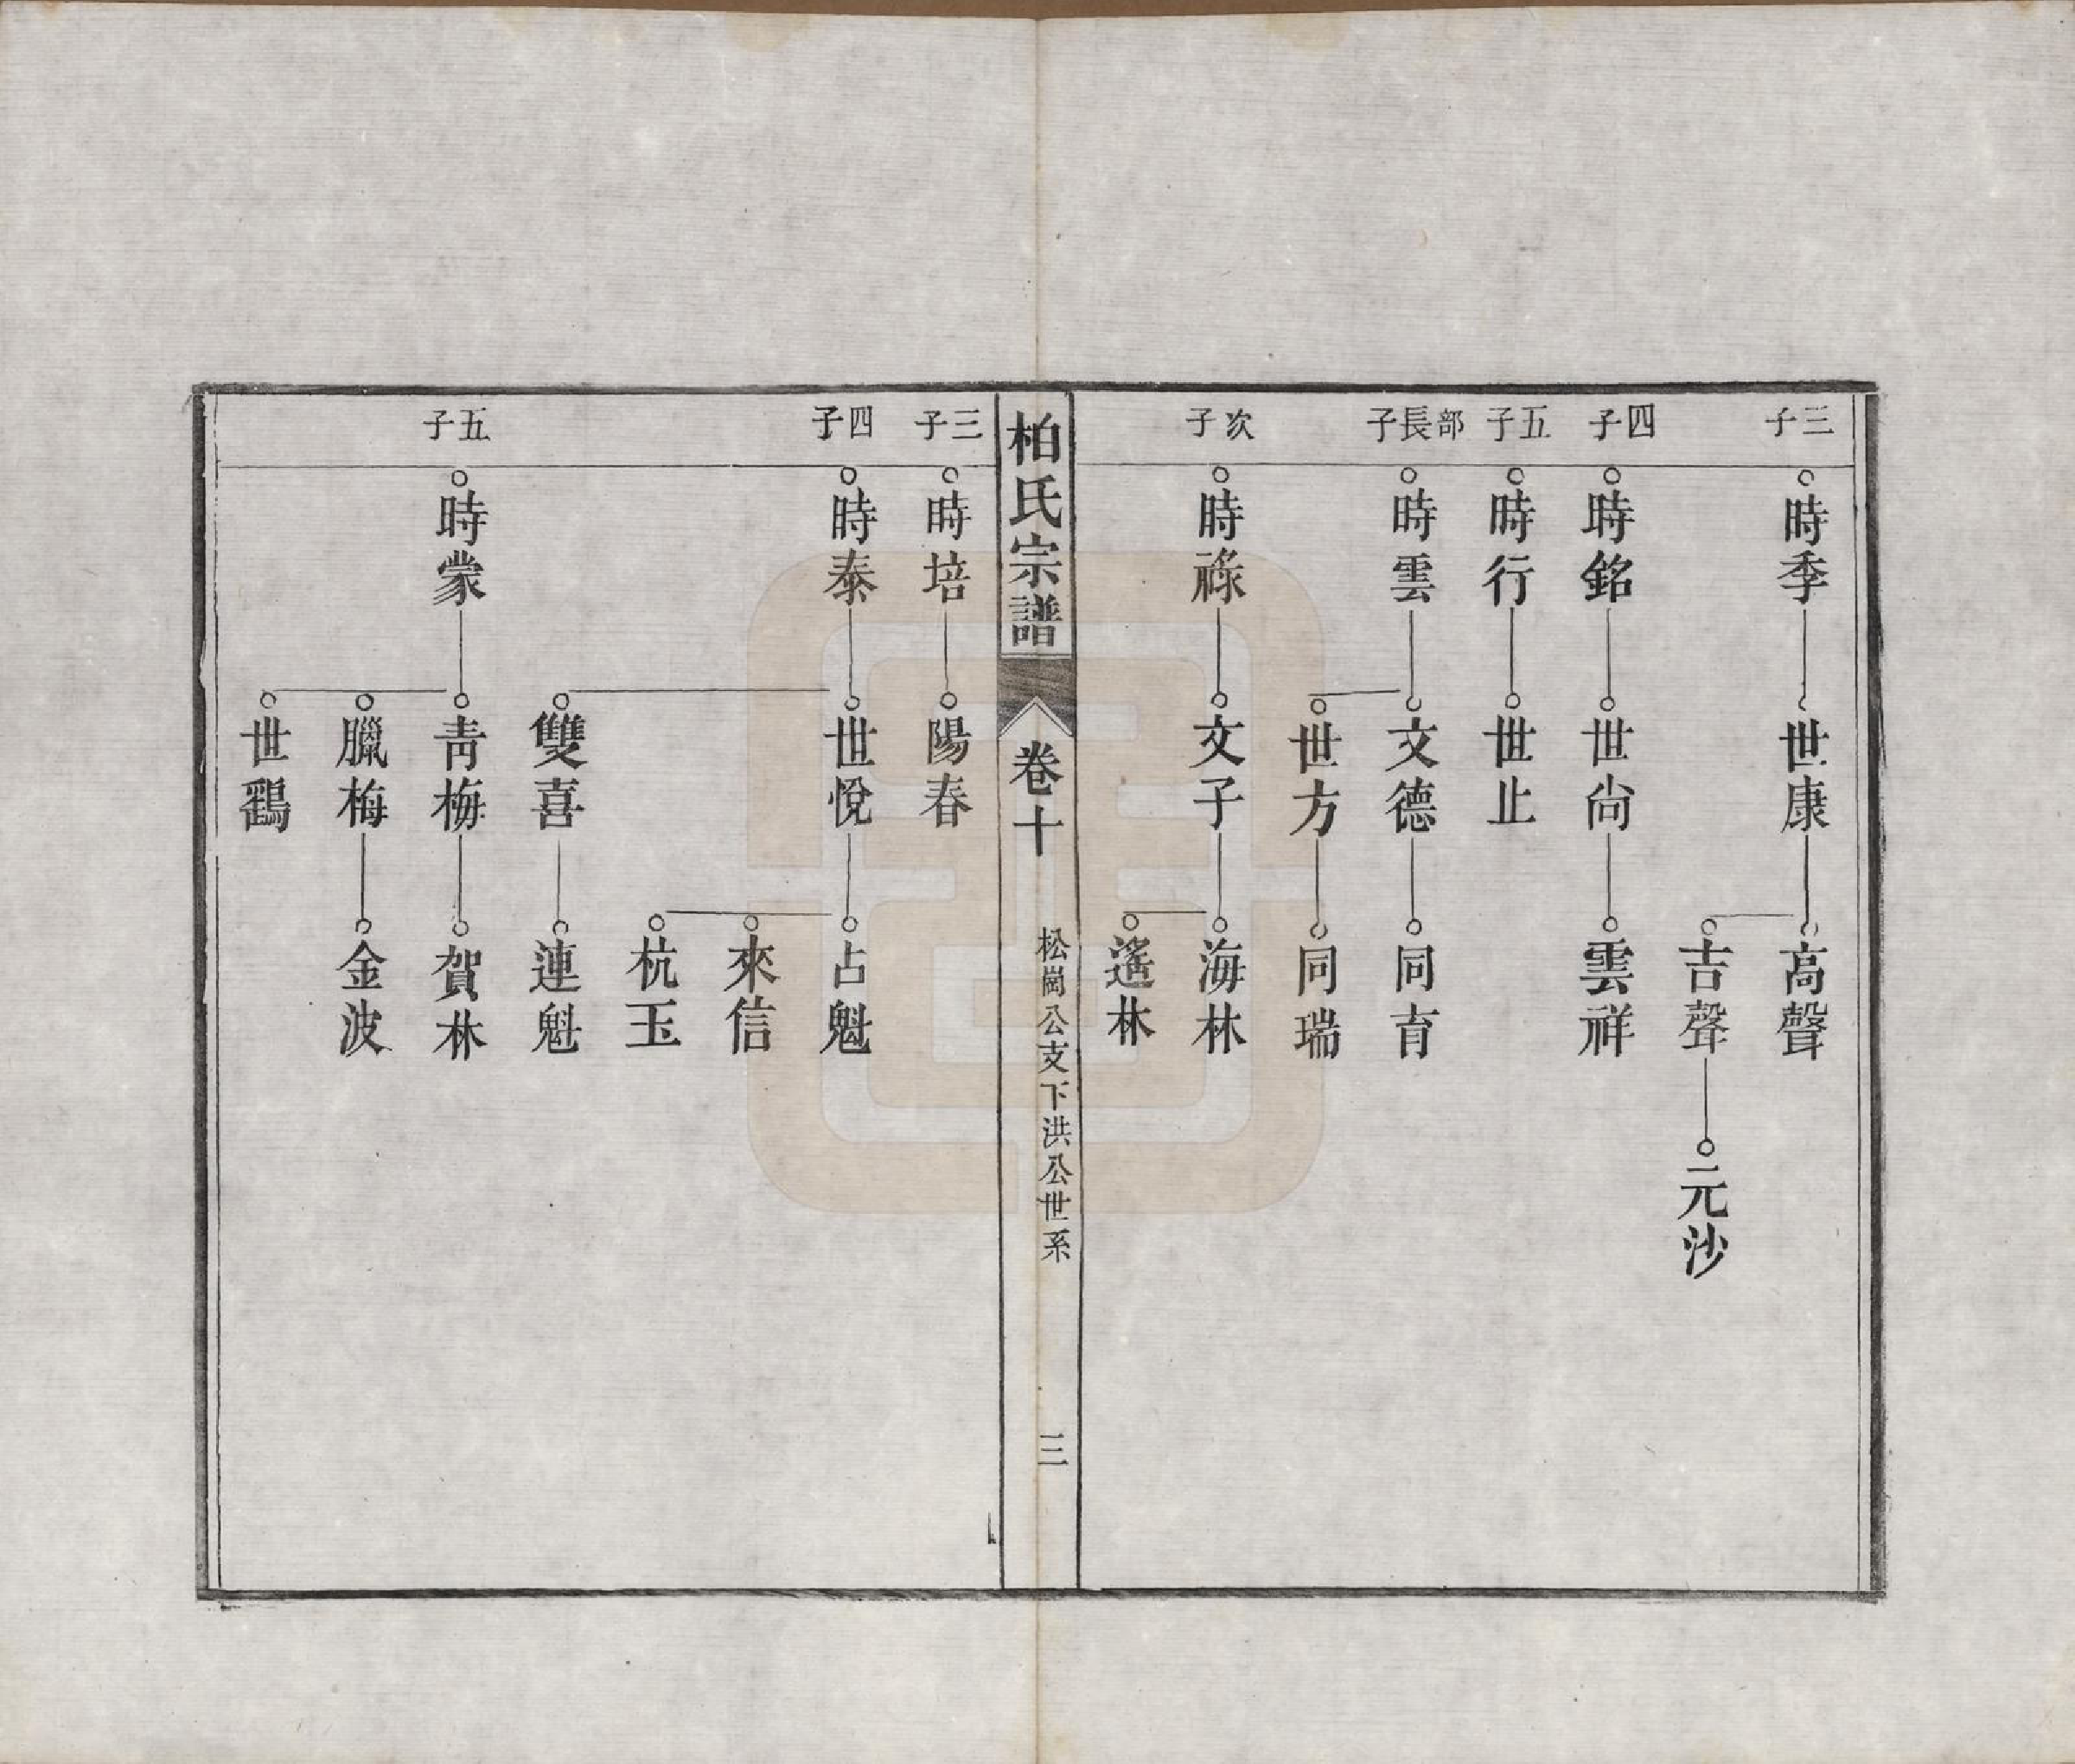 三子
時季
世康
高聲
吉聲
元沙
四子
時銘
世尙
雲祥
五子
時行
世止
部長子
時雲
文德
同育
世方
同瑞
次子
時祿
文子
海林
遙林
柏氏宗譜
卷十
松崗公支下洪公世系
三
三子
時培
陽春
四子
時泰
世悅
占魁
來信
杭玉
雙喜
連魁
五子
時蒙
靑梅
賀林
臘梅
金波
世鸛